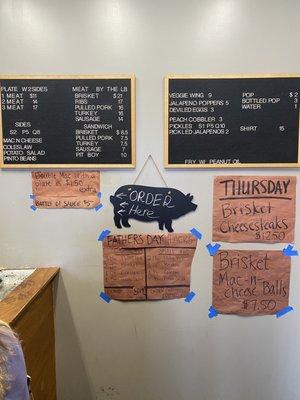 PLATE W 2SIDES
1 MEAT $11
2 MEAT 14
3 MEAT 17
SIDES
S2 P5 Q8
MAC N CHEESE
COLESLAW
POTATO SALAD
PINTO BEANS
MEAT BY THE LB
BRISKET $21
RIBS 17
PULLED PORK 16
TURKEY 16
SAUSAGE 14
SANDWICH
BRISKET $8.5
PULLED PORK 7.5
TURKEY 7.5
SAUSAGE 7
PIT BOY 10
VEGGIE WING 9
JALAPENO POPPERS 5
DEVILED EGGS 3
PEACH COBBLER 3
PICKLES S1 P5 Q10
PICKLED JALAPENOS 2
POP $2
BOTTLED POP 3
WATER 1
SHIRT 15
FRY W/ PEANUT OIL
Double Mac on a
Plate is $1.50
extra
Bottle of Sauce $5
ORDER
Here
FATHERS DAY #Packs
THURSDAY
Brisket
Cheesesteaks
$12.50
Brisket
Mac-n-
cheese Balls
$7.50